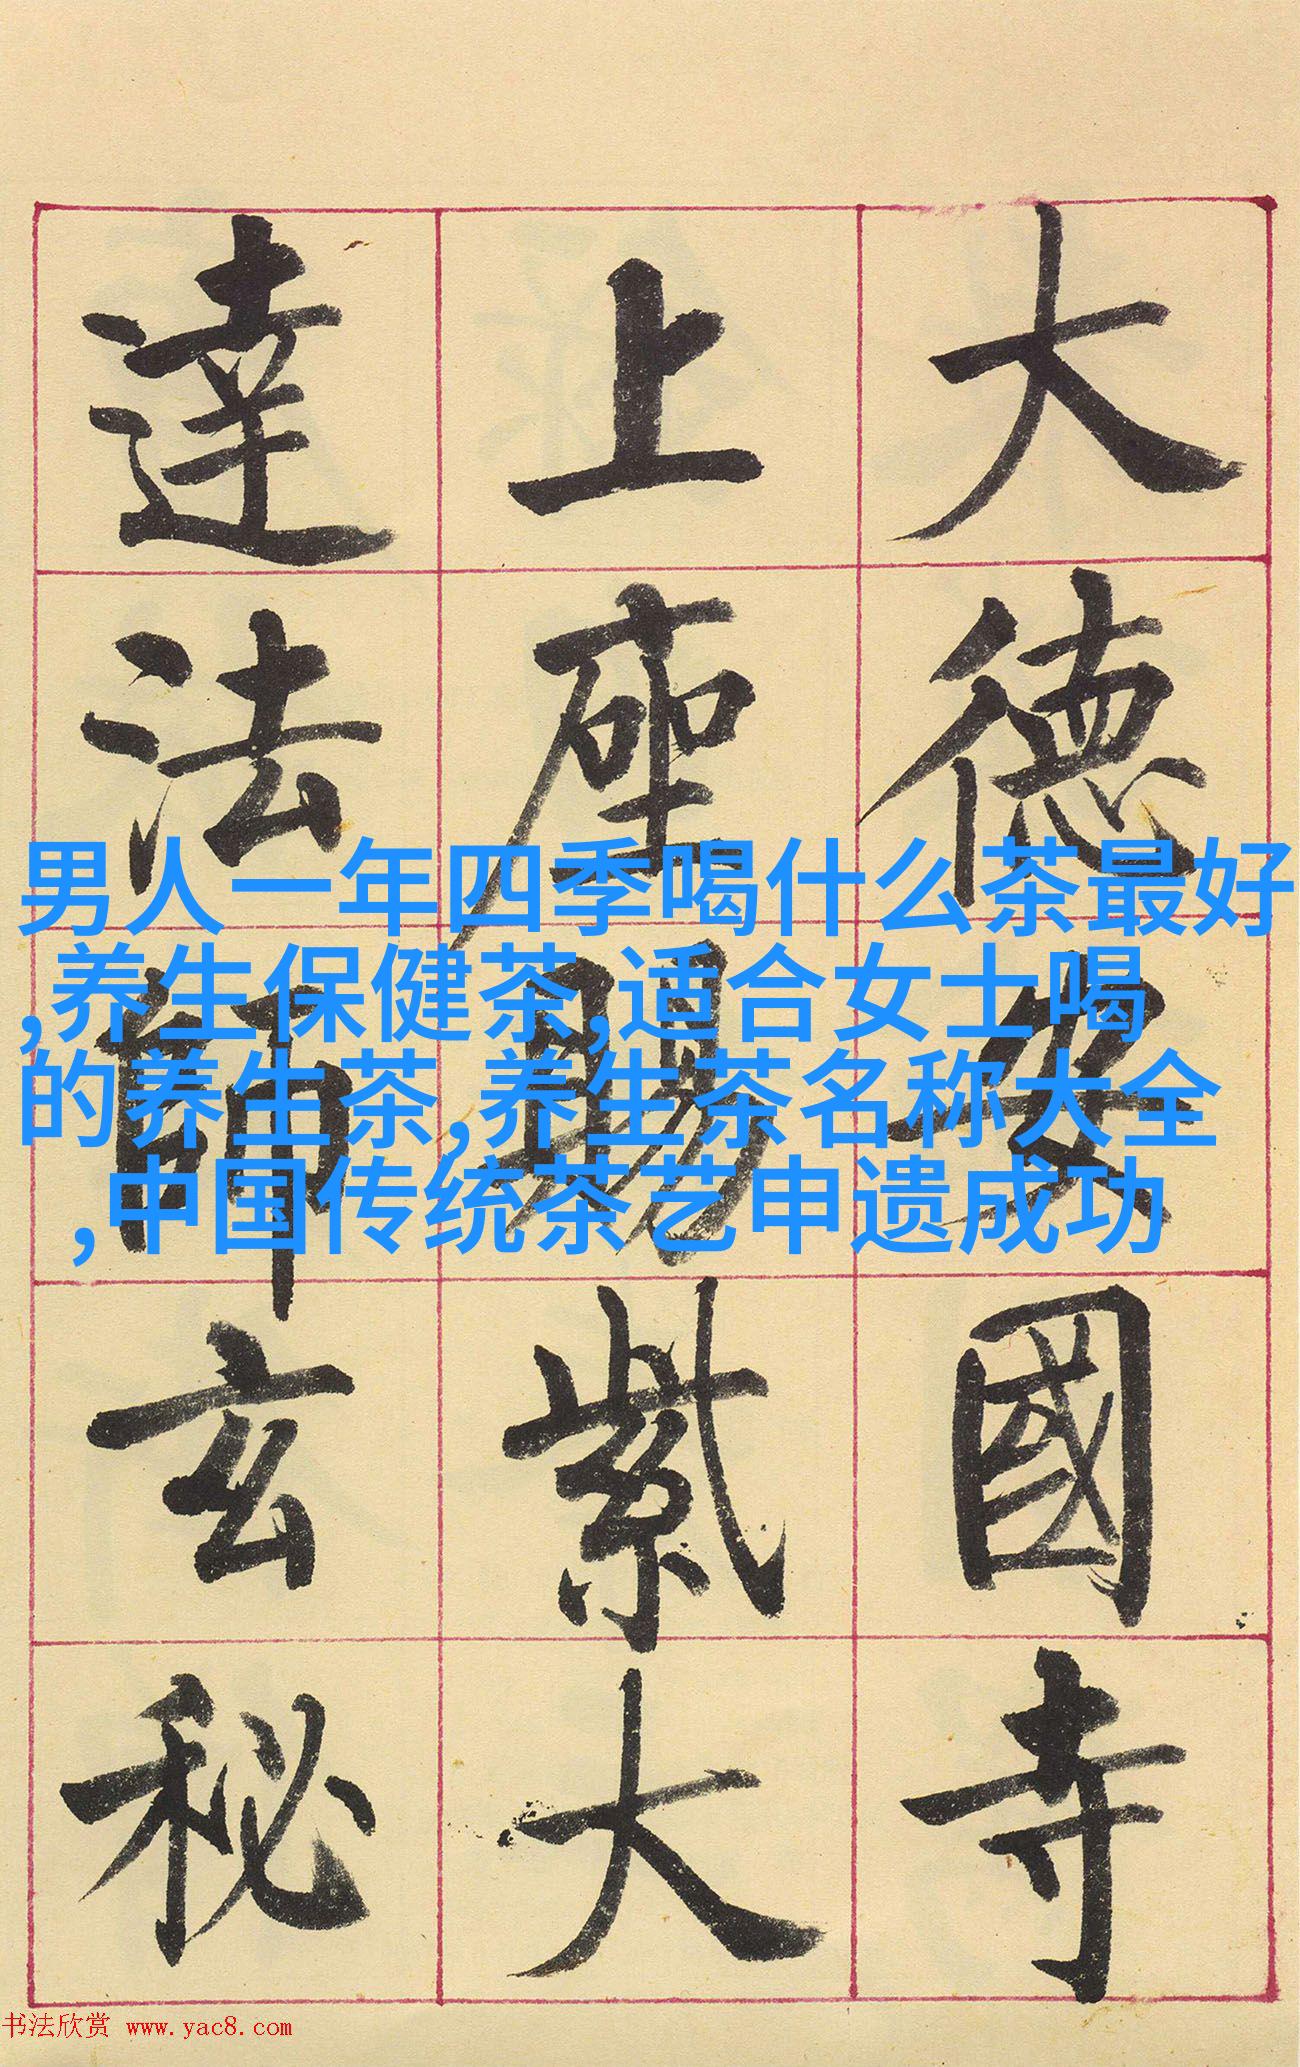 大德安國寺
上座賜紫大
達法師玄秘
男人一年四季喝什么茶最好
,养生保健茶,适合女士喝
的养生茶,养生茶名称大全
,中国传统茶艺申遗成功
书法欣赏 www.yac8.com